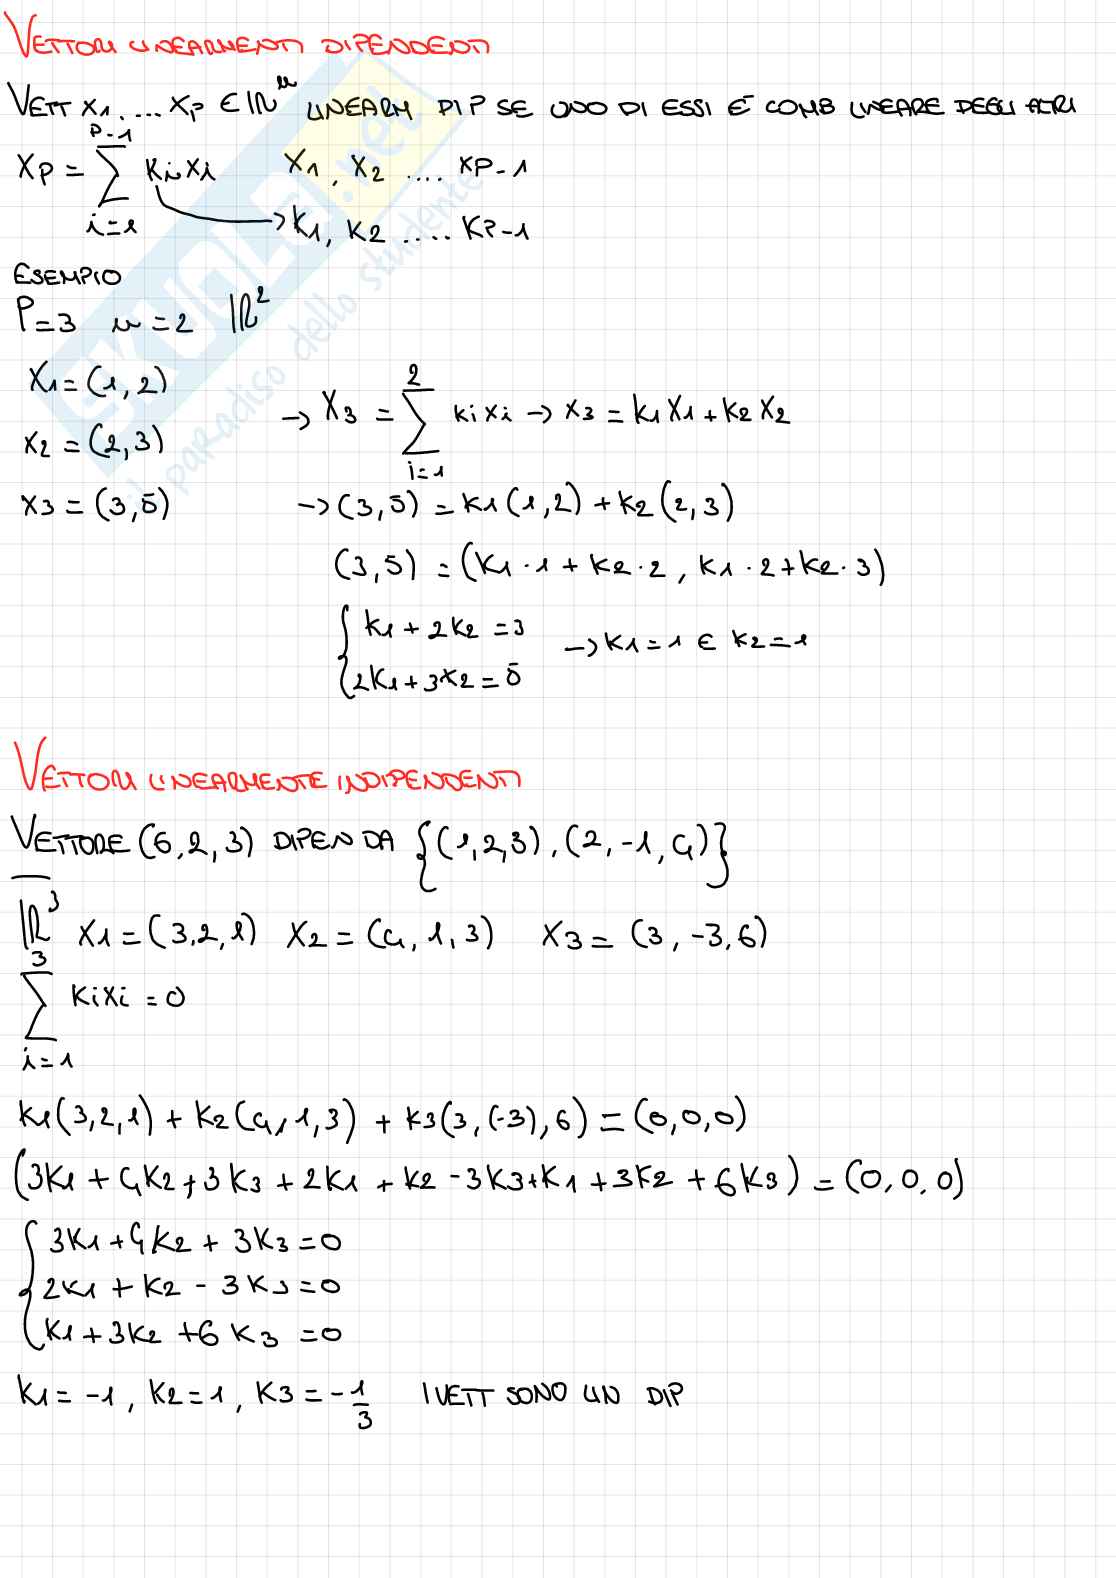 VETTORI LINEARMENTI DIPENDENTI
VETT X1, .... XP ∈ ℝⁿ LINEARM DIP SE UNO DI ESSI È COMB LINEARE DEGLI ALTRI
XP = ∑_{i=1}^{P-1} Ki Xi    X1, X2 .... XP-1
→ K1, K2 ..... KP-1
ESEMPIO
P=3  n=2  ℝ²
X1 = (1, 2)
→ X3 = ∑_{i=1}^{2} Ki Xi → X3 = K1 X1 + K2 X2
X2 = (2, 3)
X3 = (3, 5)    → (3, 5) = K1 (1, 2) + K2 (2, 3)
(3, 5) = (K1 · 1 + K2 · 2, K1 · 2 + K2 · 3)
{ K1 + 2K2 = 3
→ K1 = 1 E K2 = 1
2K1 + 3K2 = 5
VETTORI LINEARMENTE INDIPENDENTI
VETTORE (6, 2, 3) DIPEN DA {(1, 2, 3), (2, -1, 4)}
ℝ³ X1 = (3, 2, 1)  X2 = (4, 1, 3)  X3 = (3, -3, 6)
∑_{i=1}^{3} Ki Xi = 0
K1 (3, 2, 1) + K2 (4, 1, 3) + K3 (3, (-3), 6) = (0, 0, 0)
(3K1 + 4K2 + 3K3 + 2K1 + K2 - 3K3 + K1 + 3K2 + 6K3) = (0, 0, 0)
{ 3K1 + 4K2 + 3K3 = 0
2K1 + K2 - 3K3 = 0
K1 + 3K2 + 6K3 = 0
K1 = -1, K2 = 1, K3 = -1/3    I VETT SONO LIN DIP
SKUOLA.net
il paradiso dello studente